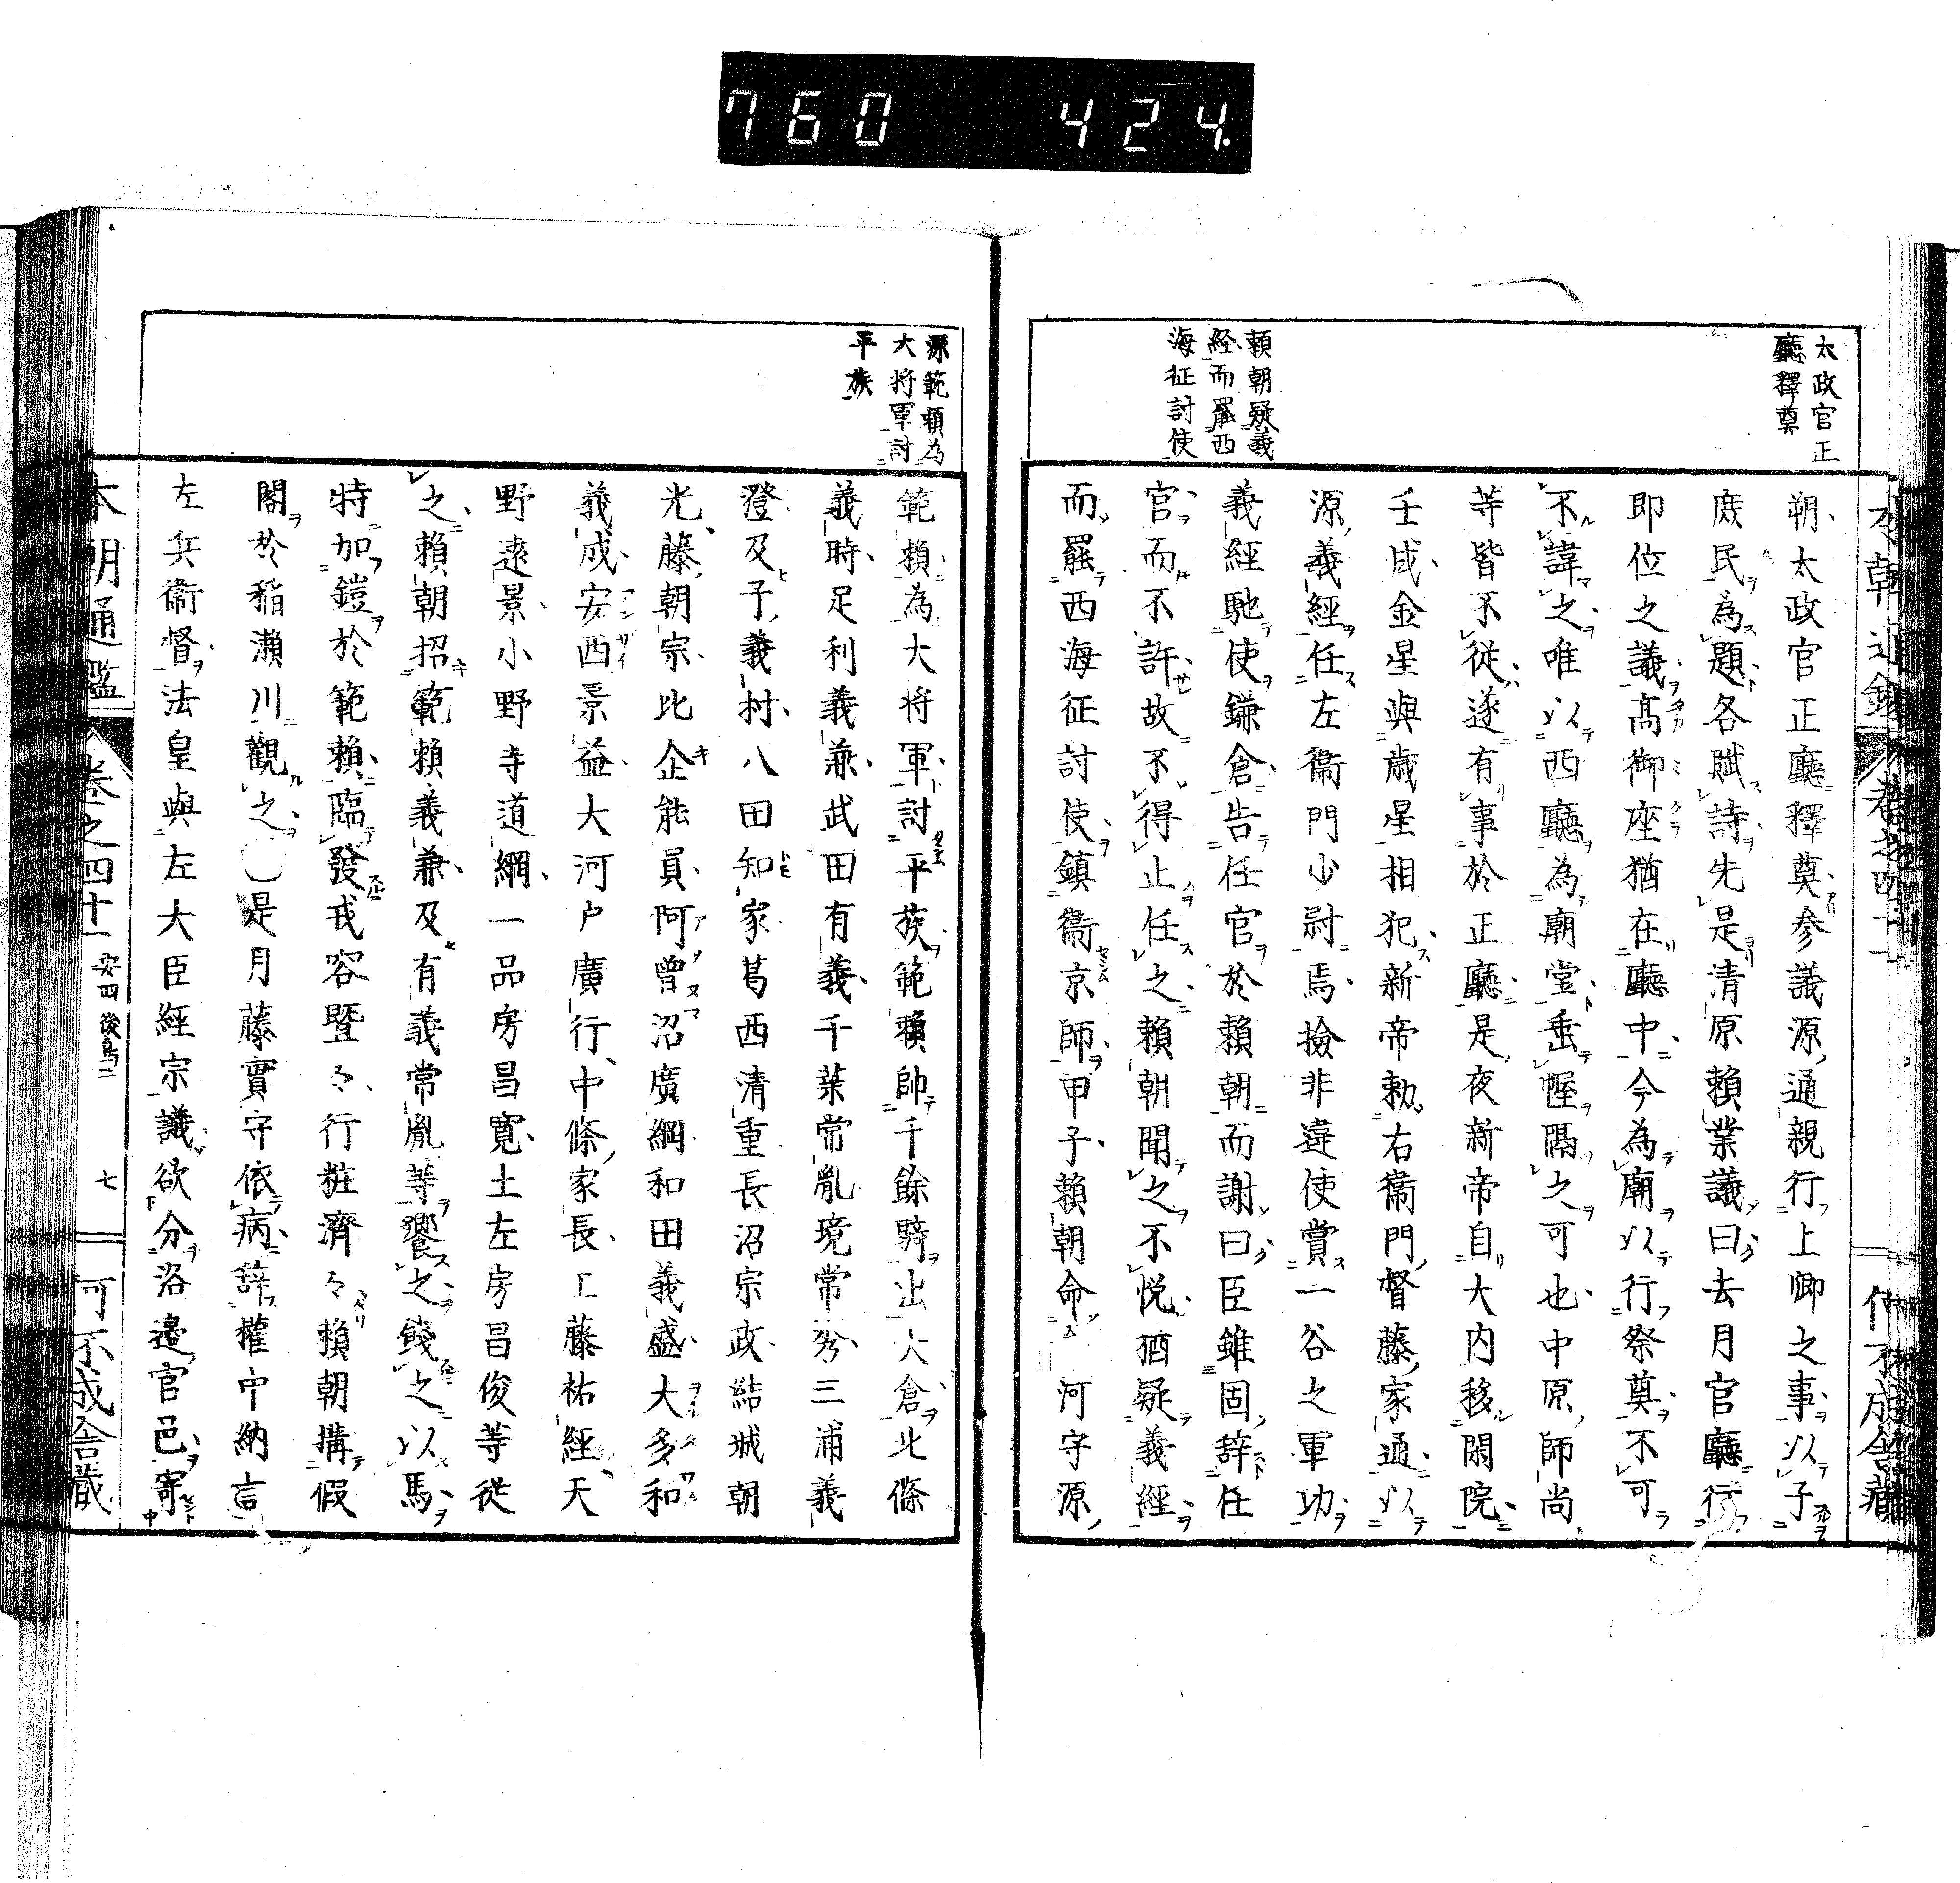 760 424
太政官正
廳釋奠
賴朝疑義
経而罷西
海征討使
朔太政官正廳釋奠参議源通親行上卿之事以子
庶民為題各賦詩先是清原賴業議曰去月官廳行
即位之議高御座猶在廳中今為廟以行祭奠不可
不諱之唯以西廳為廟堂垂幄隔之可也中原師尚
等皆不從遂有事於正廳是夜新帝自大内移閑院
壬戌金星與歳星相犯新帝勅右衞門督藤家通以
源義經任左衞門少尉焉撿非違使賞一谷之軍功
義經馳使鎌倉告任官於賴朝而謝曰臣雖固辞任
官而不許故不得止任之賴朝聞之不悦猶疑義經
而罷西海征討使鎮衞京師甲子賴朝命 河守源
源範賴為
大将軍討
平族
範賴為大将軍討平族範賴帥千餘騎出大倉北條
義時足利義兼武田有義千葉常胤境常秀三浦義
澄及子義村八田知家葛西清重長沼宗政結城朝
光藤朝宗比企能員阿曽沼廣綱和田義盛大多和
義成安西景益大河戸廣行中條家長工藤祐經天
野遠景小野寺道綱一品房昌寛土左房昌俊等從
之賴朝招範賴義兼及有義常胤等饗之餞之以馬
特加鎧於範賴臨發戎容曁々行粧濟々賴朝搆假
閣於稲瀬川觀之〇是月藤實守依病辞權中納言
左兵衞督法皇與左大臣経宗議欲分洛邉官邑寄
本朝通鑑 卷之四十一 安四 後鳥二 七 可不成舎蔵